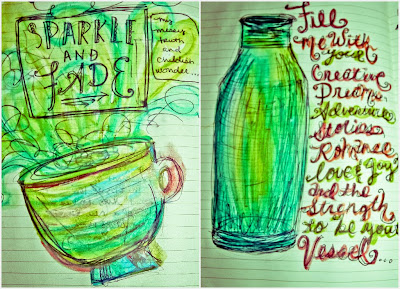 SPARKLE
AND
FADE
my
messy
truth
and
childish
wonder...
Fill
me With
your
Creative
Dreams
Adventures
Stories
Romance
love & Joy
and the
Strength
to be your
Vessel...